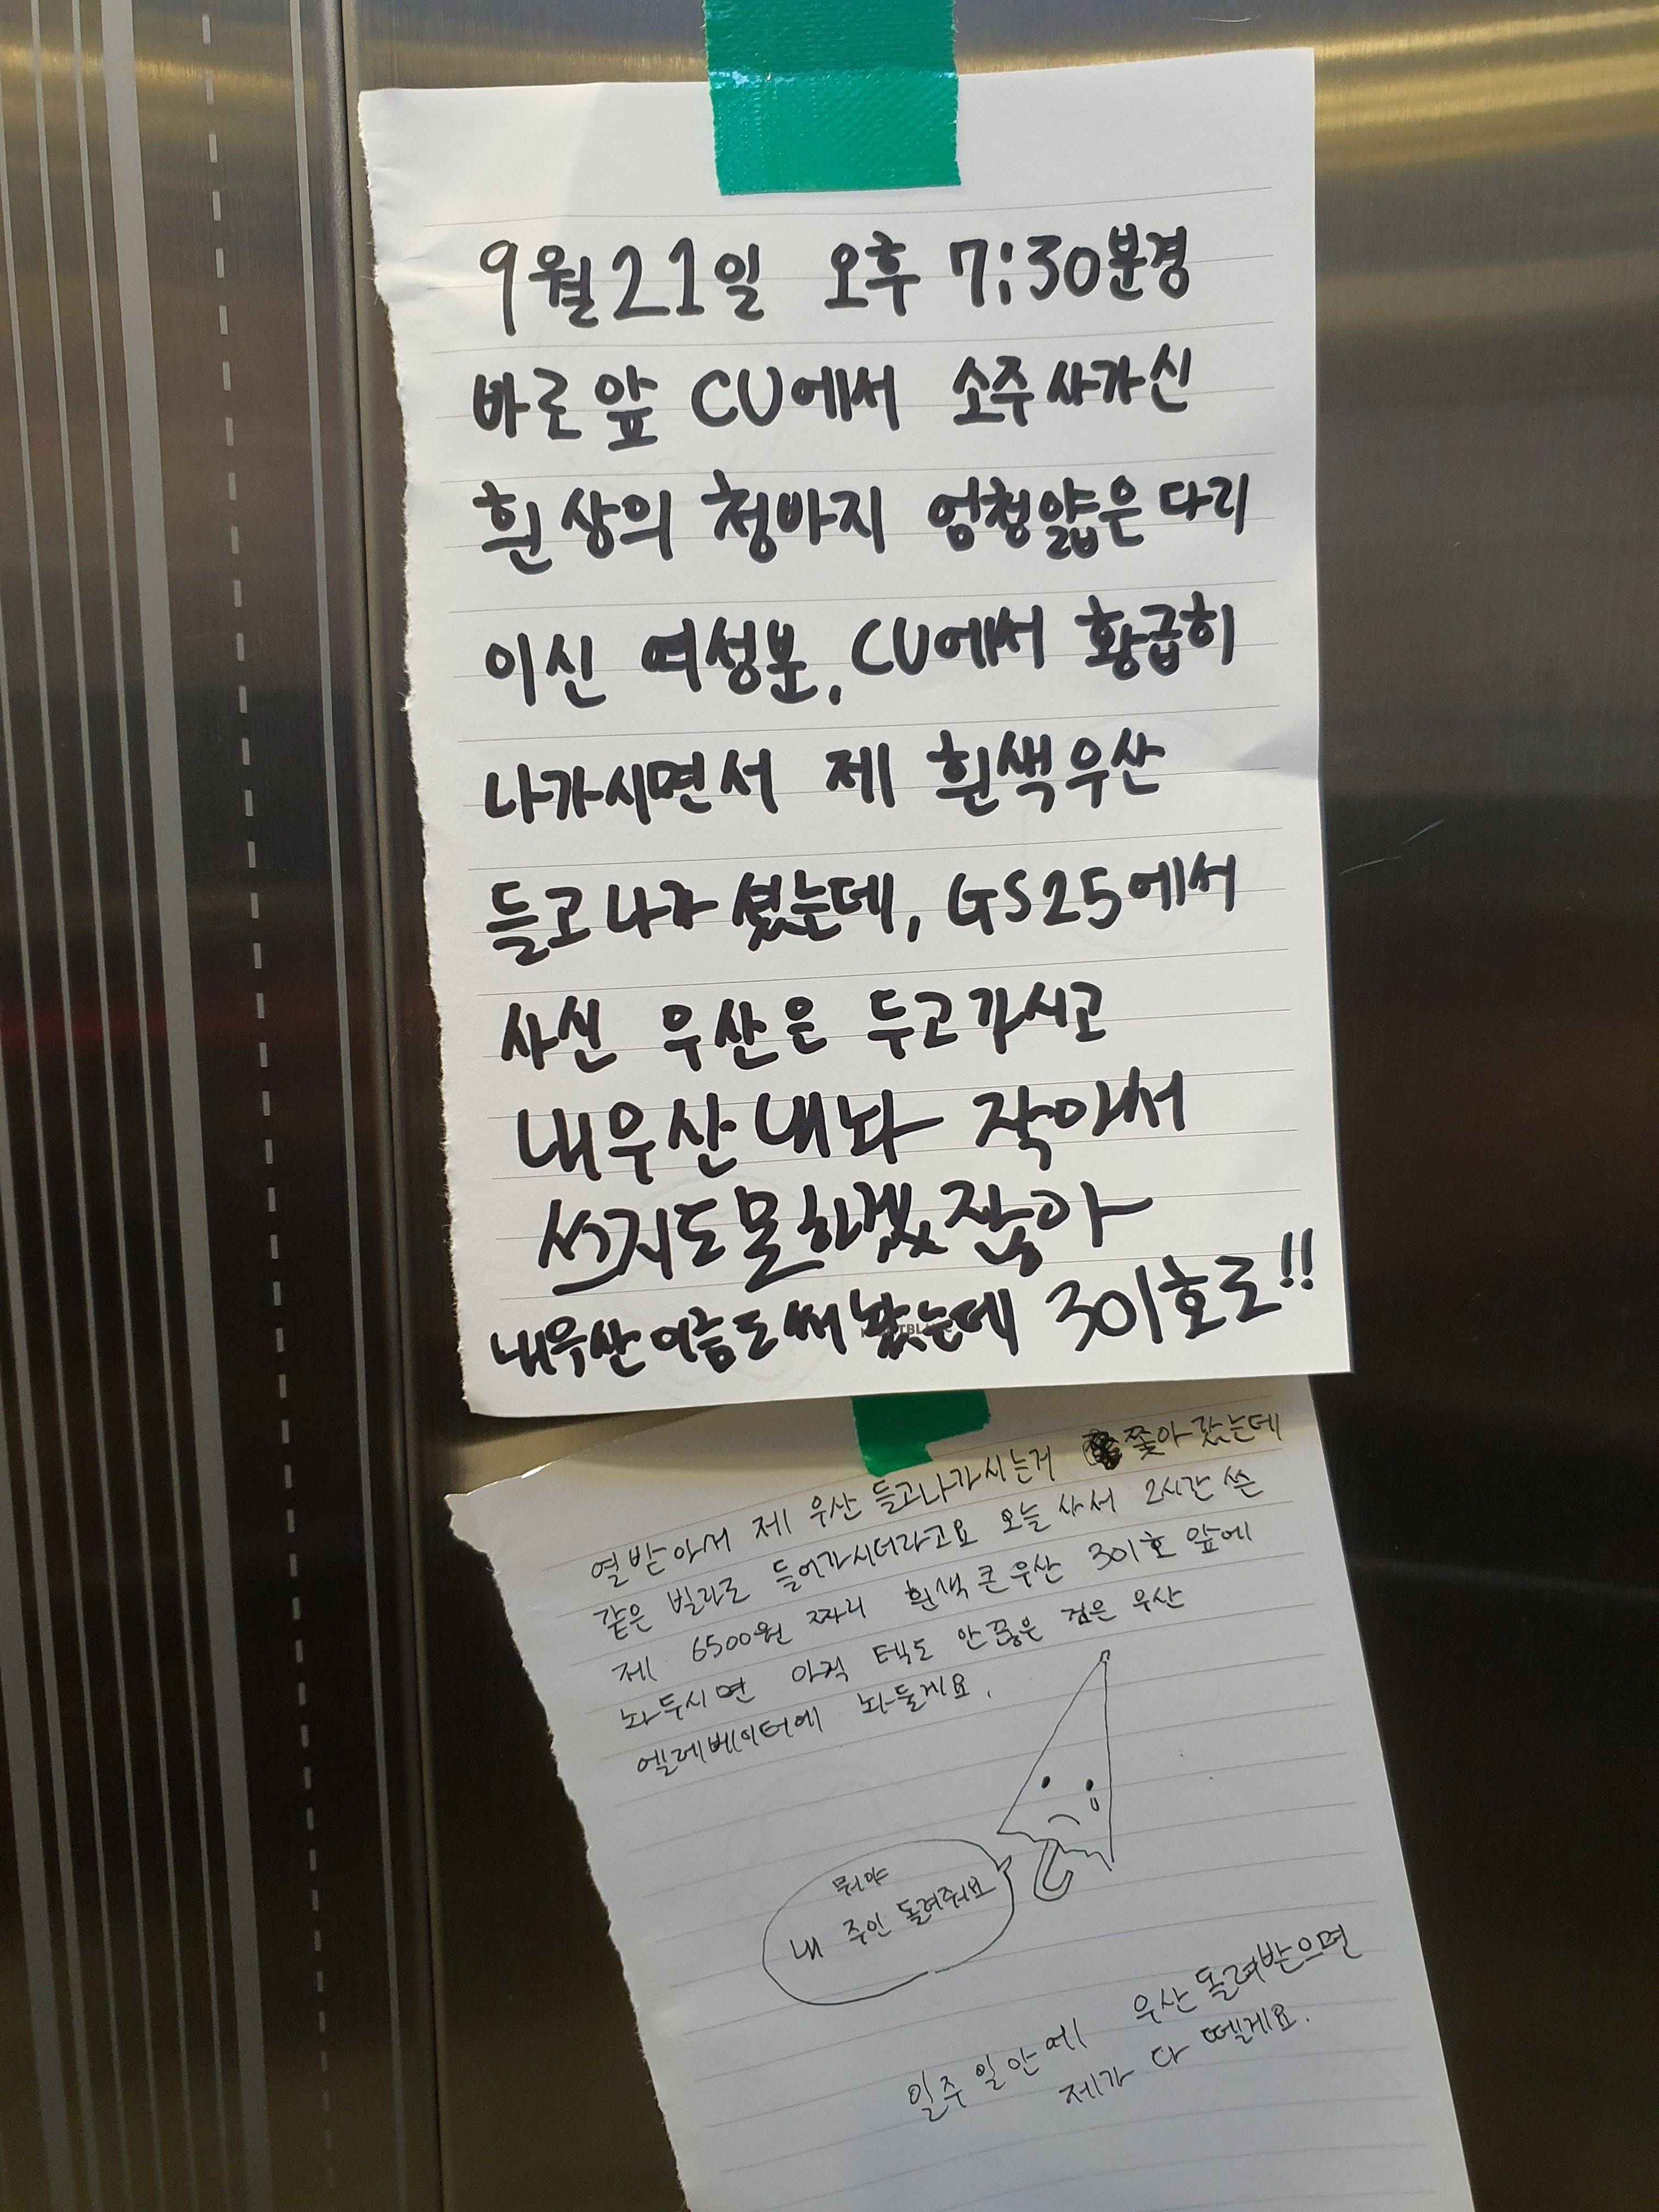 9월21일 오후 7:30분경
바로앞 CU에서 소주사가신
흰상의 청바지 엄청얇은다리
이신 여성분, CU에서 황급히
나가시면서 제 흰색우산
들고나가셨는데, GS25에서
사신 우산은 두고가시고
내우산내놔 작아서
쓰지도못하겠잖아
내우산이름도써놨는데 301호로!!
열받아서 제 우산 들고나가시는거 쫓아갔는데
같은 빌라로 들어가시더라고요 오늘 사서 2시간 쓴
제 6500원 짜리 흰색큰우산 301호 앞에
놔두시면 아직 텍도 안끊은 검은 우산
엘레베이터에 놔둘게요.
뭐야
내 주인 돌려줘요
일주일안에 우산돌려받으면
제가 다 뗄게요.